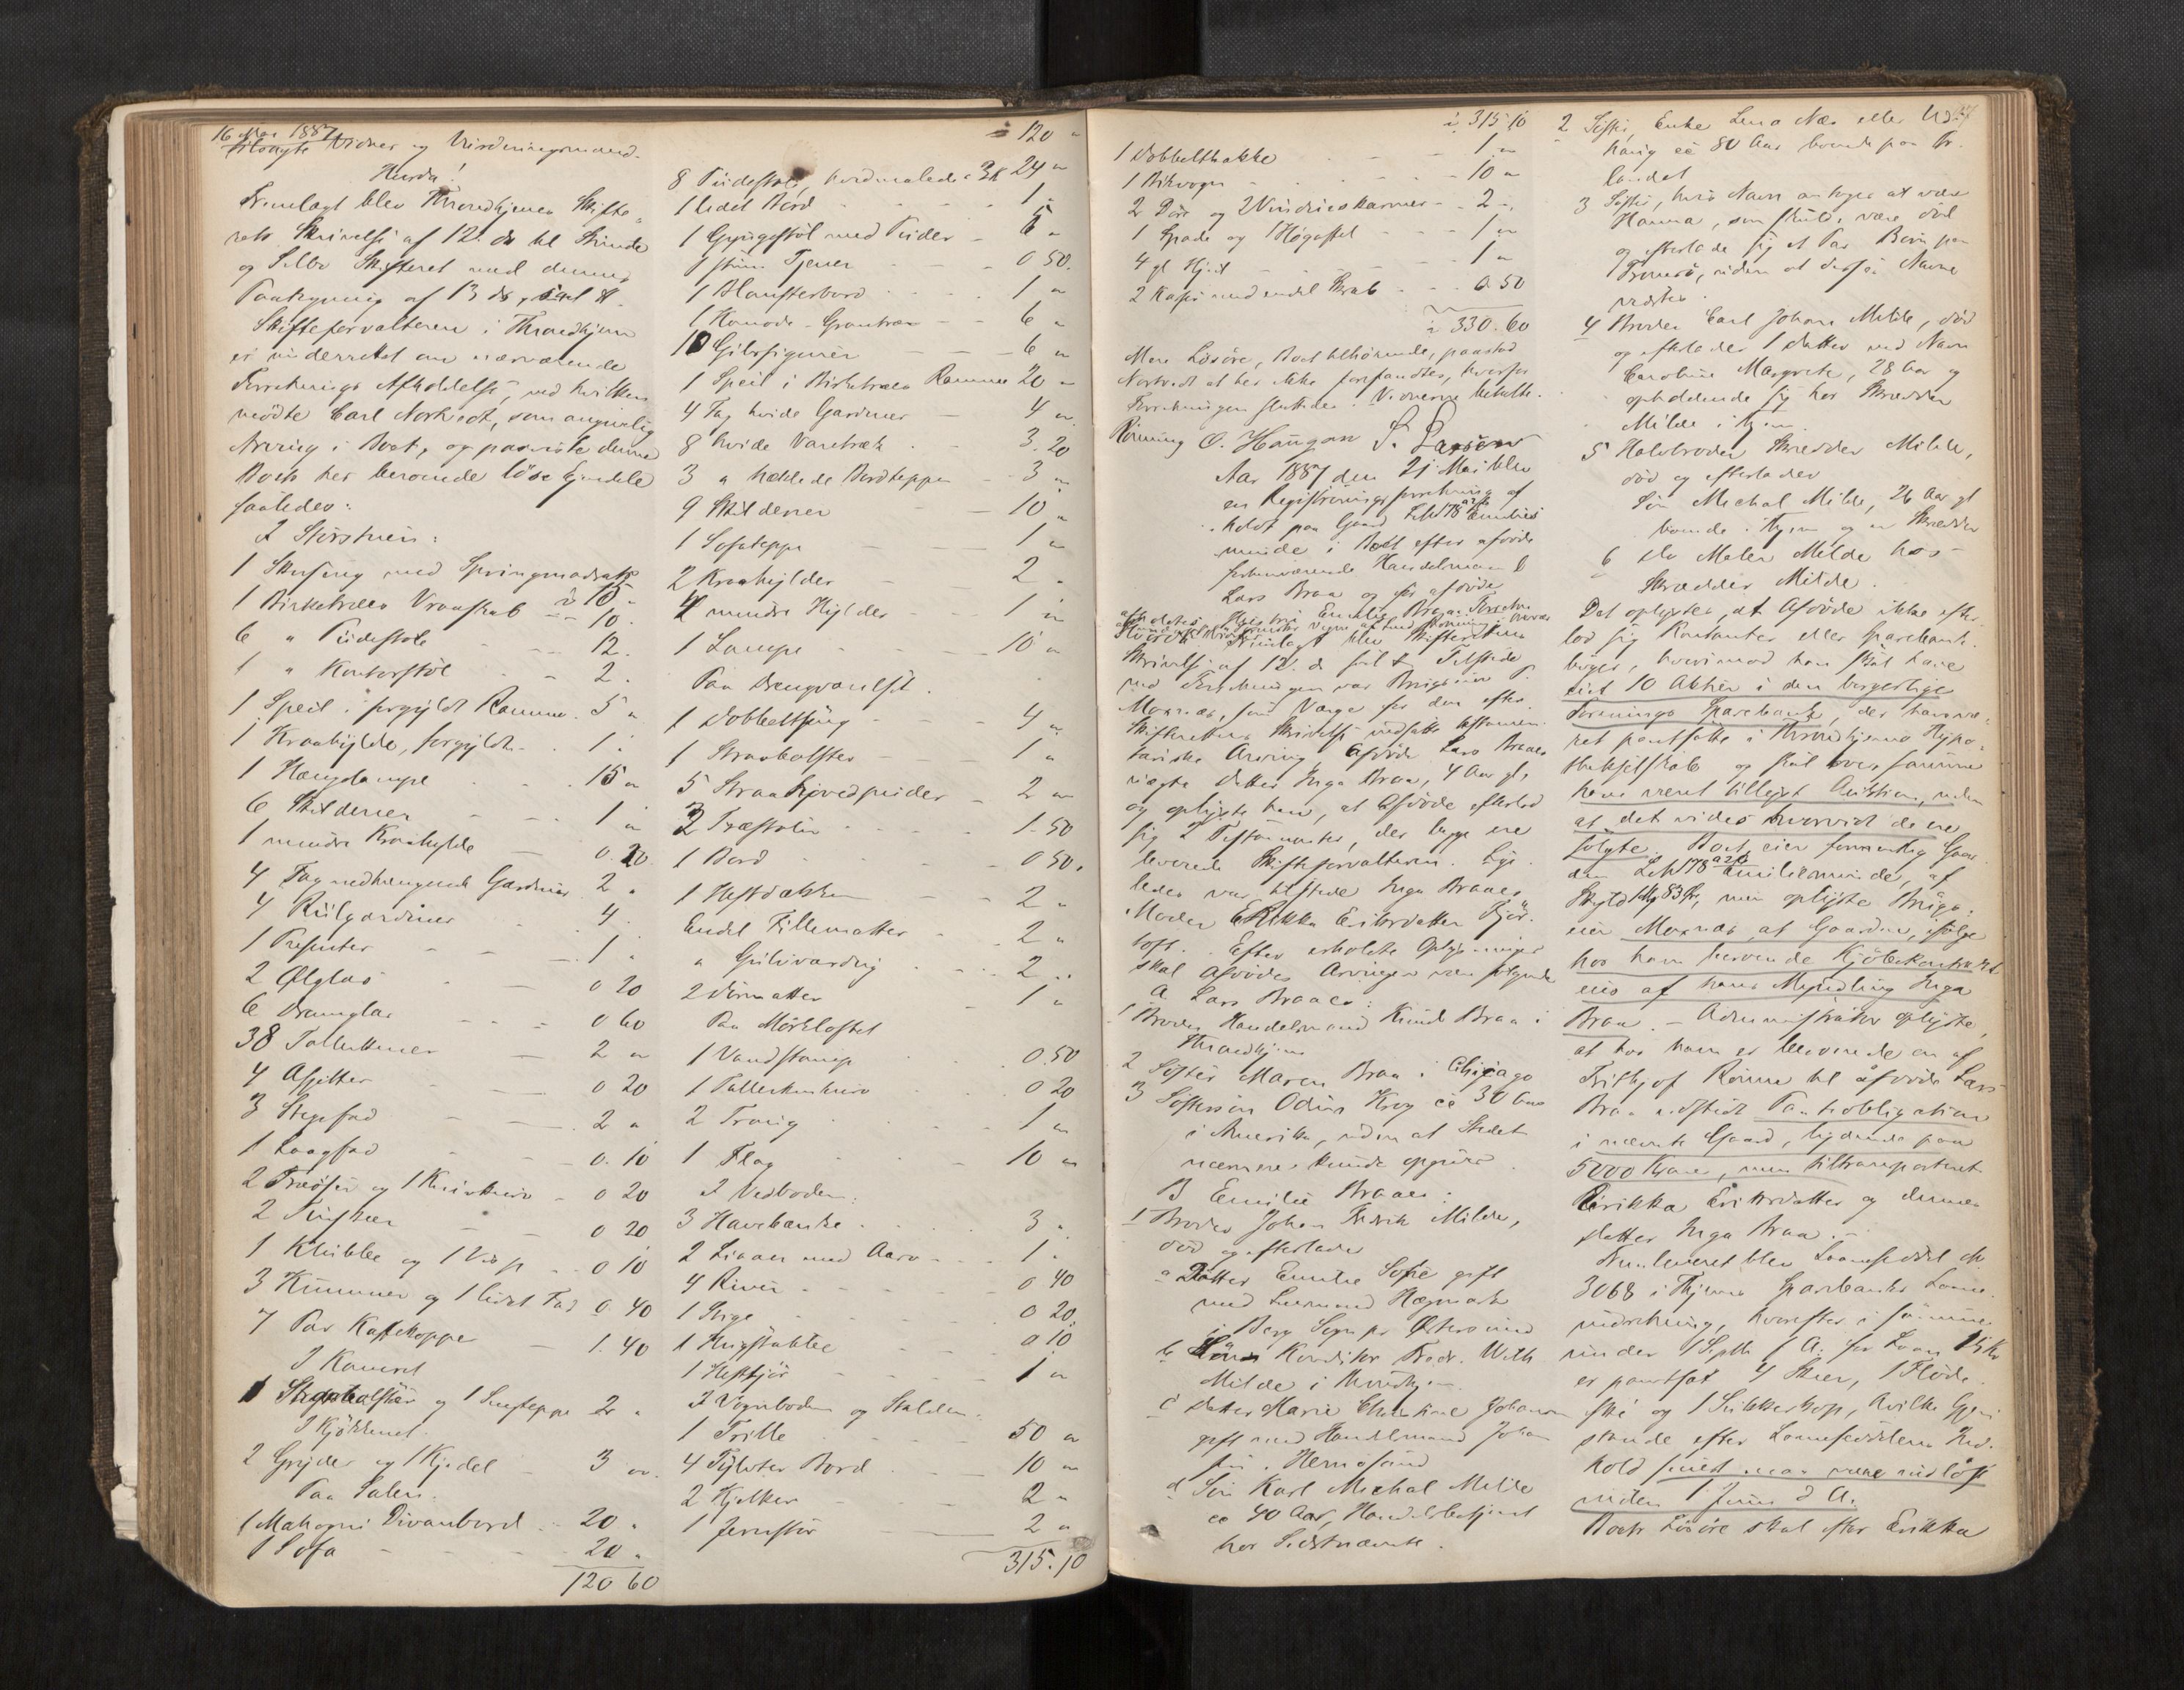 16 Mai 1887
tilkaldte Vidner og Vurderingsmænd.
Hurda!
Fremlagt blev Throndhjems Skifte-
rets Skrivelse af 12. ds til Strinde
og Selbo Skifteret med dennes
Paategning af 13 ds,
Skifteforvalteren i Throndhjem
er underrettet om nærværende
Forretnings Afholdelse, ved hvilken
mødte Carl Norkvedt, som angivelig
Arving i Boet, og paaviste denne
Boets her beroende løse Eiendele
saaledes:
I Storstuen:
1 Skufseng med Springmadrats
à 15 "
1 Birketræes Vraaskab 10.
6 " Pudestole 12.
1 " Kontorstol 2.
1 Speil i forgyldt Ramme 5 "
1 Kraahylde, forgyldt 1 "
1 Hængelampe 15 "
6 Skilderier 1 "
1 mindre Kraahylde 0.20
4 Fag nedhængende Gardiner 2 "
4 Rulgardiner 4.
1 Presenter 1 "
2 Ølglas 0 20
6 Dramglas 0 60
38 Tallerkener 2 "
4 Asjetter 0 20
3 Stegefad 2 "
1 Laagfad 0.10
2 Træøser og 1 Knivkurv 0 20
2 0 20
1 Klubbe og 1 Visp 0 10
3 Kummer og 1 lidet Fad 0.40
7 Par Kaffekoppe 1.40
I Kameret
1 og 1 Sengteppe 2 "
I Kjøkkenet.
2 Gryder og 1 Kjedel 3 "
Paa Salen.
1 Mahogni Divanbord 20 "
1 Sofa 20 "
120 60
120 "
8 Pudestole, hvidmalede à 3 K 24 "
1 lidet Bord 1.
1 Gyngestol med Puder 6 "
1 stum Tjener 0 50.
1 Blomsterbord 1 "
1 Komode - Grantræ 6 "
10 Gibsfigurer 6 "
1 Speil i Birketræes Ramme 20 "
4 Fag hvide Gardiner 4 "
8 hvide Varetræk 3.20
3 " heklede Bordtepper 3 "
9 Skilderier 10 "
1 Sofateppe 1 "
2 Kraahylder 2 "
4 mindre Hylder 1 "
1 Lampe 10 "
Paa Drengværelset.
1 Dobbeltseng 4 "
1 Straabolster 1 "
5 Straahovedpuder 2 "
3 Træstoler 1.50
1 Bord 0 50.
1 Hestdækken 2 "
Endel Fillematter 2 "
" Gulvvarding 2 "
2 Dørmatter 1 "
Paa Mørkloftet
1 Vandstamp 0.50
1 Tallerkenkurv 0 20
2 Traug 1 "
1 Flag 10 "
I Vedboden:
3 Havebænke 3 "
2 Ljaaer med Aarv 1 "
4 River 0 40
1 Sege 0 20.
1 Hugstabbe 0 10
1 Hestfjør 1 "
I Vognboden og Stalden:
1 Trille 50 "
4 Tylvter Bord 10 "
2 Kjelker 2 "
1 Jernstør 2 "
315.10
à 315.10
1 Dobbelthakke 1 "
1 Arbvogn 10 "
2 Døre og 2 Vindueskarmer 2 "
1 Spade og 1 Høgaffel 1 "
4 gl Hjul 1 "
2 Kasser med endel Skrab 0.50
à 330.60
Mere Løsøre, Boet tilhørende, paastod
Norkvedt at her ikke forefandtes, hvorfor
Forretningen sluttedes. Vidnerne bekræfte.
Rønning O. Haugan P. Larsen
Aar 1887 den 21 Mai blev
en Registreringsforretning af-
holdt paa Gaard L№ 178 Emilies
minde i Boet efter afdøde
forhenværende Handelsmand
Lars Braa og før afdøde
Hustru Emilie Braa. Forretn
afholdtes
Fremlagt blev Skifterettens
Skrivelse af 12. ds Tilstede
ved Forretningen var Brigader P.
Moxnæs, som Værge for den efter
Skifterettens Skrivelse indsatte testamen-
tariske Arving, Afdøde Lars Braaes
uægte Datter Inga Braa, 4 Aar gl.,
og oplyste han, at Afdøde efterlod
sig 2 Testamenter, der begge ere
leverede Skifteforvalteren. Lige-
ledes var tilstede Inga Braaes
Moder Erikka Eriksdatter Fjør-
toft. Efter erholdte Oplysninger
skal Afdødes Arvinger være følgende
A Lars Braaes:
1 Broder Handelsmand Knud Braa i
Throndhjem
2 Søster Maren Braa i Chicago
3 Søstersøn Odin Krog cà 30 Aar
i Amerika, uden at Stedet
nærmere kunde opgives.
B Emilie Braaes:
1 Broder Johan Fredrik Milde,
død og efterlader
a Datter Emilie Sofie gift
med Lensmand Hegmark
i Berg Sogn pr Østersund
b Søn Konditor Fredr. Wilh
Milde i Throndhjem.
c Datter Marie Christine Johansen
gift med Handelsmand Johan
sen i Hernøsand
d Søn Karl Michal Milde
cà 40 Aar, Handelsbetjent
hos Sidstnævnte.
2 Søster, Enke Lena Næs eller
cà 80 Aar boende paa
landet
3 Søster, hvis Navn antages at være
Hanna, som skulde være død
og efterlade sig et Par Børn paa
Tromsø, uden at disses Navne
vidstes.
4 Broder Carl Johan Milde, død
og efterlader 1 Datter ved Navn
Caroline Margrete, 28 Aar og
opholdende sig hos Skrædder
Milde i Thjem
5 Halvbroder Skrædder Milde,
død og efterlader
Søn Michal Milde, 26 Aar gl
boende i Thjem og er Skrædder
6 do Maler Milde hos
Skrædder Milde.
Det oplystes, at Afdøde ikke efter
lod sig Kontanter eller Sparebank-
bøger, hvorimod han skal have
eiet 10 Aktier i den borgerlige
Forenings Sparebank, der har væ-
ret pantsatte i Throndhjems Hypo-
thekselskab og skal over samme
have været tillyst Auktion, uden
at det vides hvorvidt de ere
solgte. Boet eier formentlig Gaar-
den L№ 178 Emilieminde, af
Skyld 1 Mk 83 Øre, men oplyste Briga-
der Moxnæs at Gaarden, ifølge
hos ham beroende Kjøbekontrakt
eies af hans Myndling Inga
Braa. – Administrator oplyste,
at hos ham er beroende en af
Frithjof Rønne til afdøde Lars
Braa udstedt Panteobligation
i nævnte Gaard, lydende paa
5000 Kroner, men tiltransporteret
Erikka Eriksdatter og dennes
Datter Inga Braa. –
Fremleveret blev Laaneseddel №
3068 i Thjems Sparebanks Laane-
indretning, hvorefter i samme
under 1 Septbr f. A. for Laan 15 Kr
er pantsat 4 Skeer, 1 Fløde-
ske og 1 Sukkerskop, hvilke Gjen-
stande efter Laaneseddelens Ind-
hold senest maa være indløst
inden 1 Juni d A.
Boets Løsøre skal efter Erikka